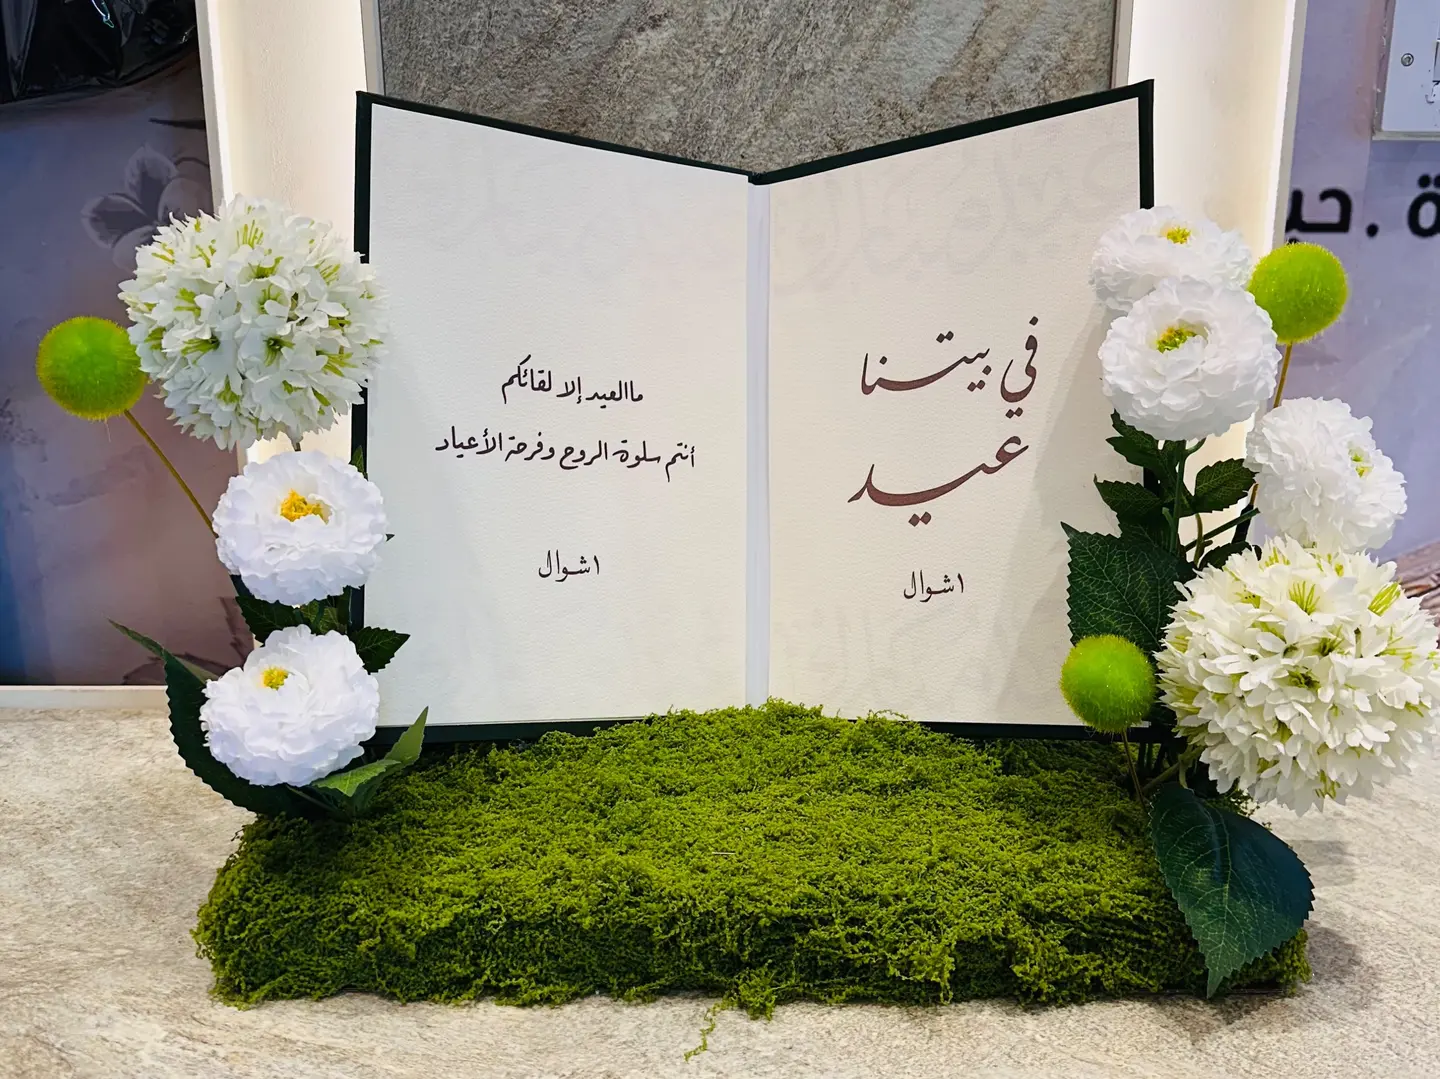 في بيتنا
عيد
١ شوال
ماالعيد إلا لقائكم
أنتم سلوة الروح وفرحة الأعياد
١ شوال